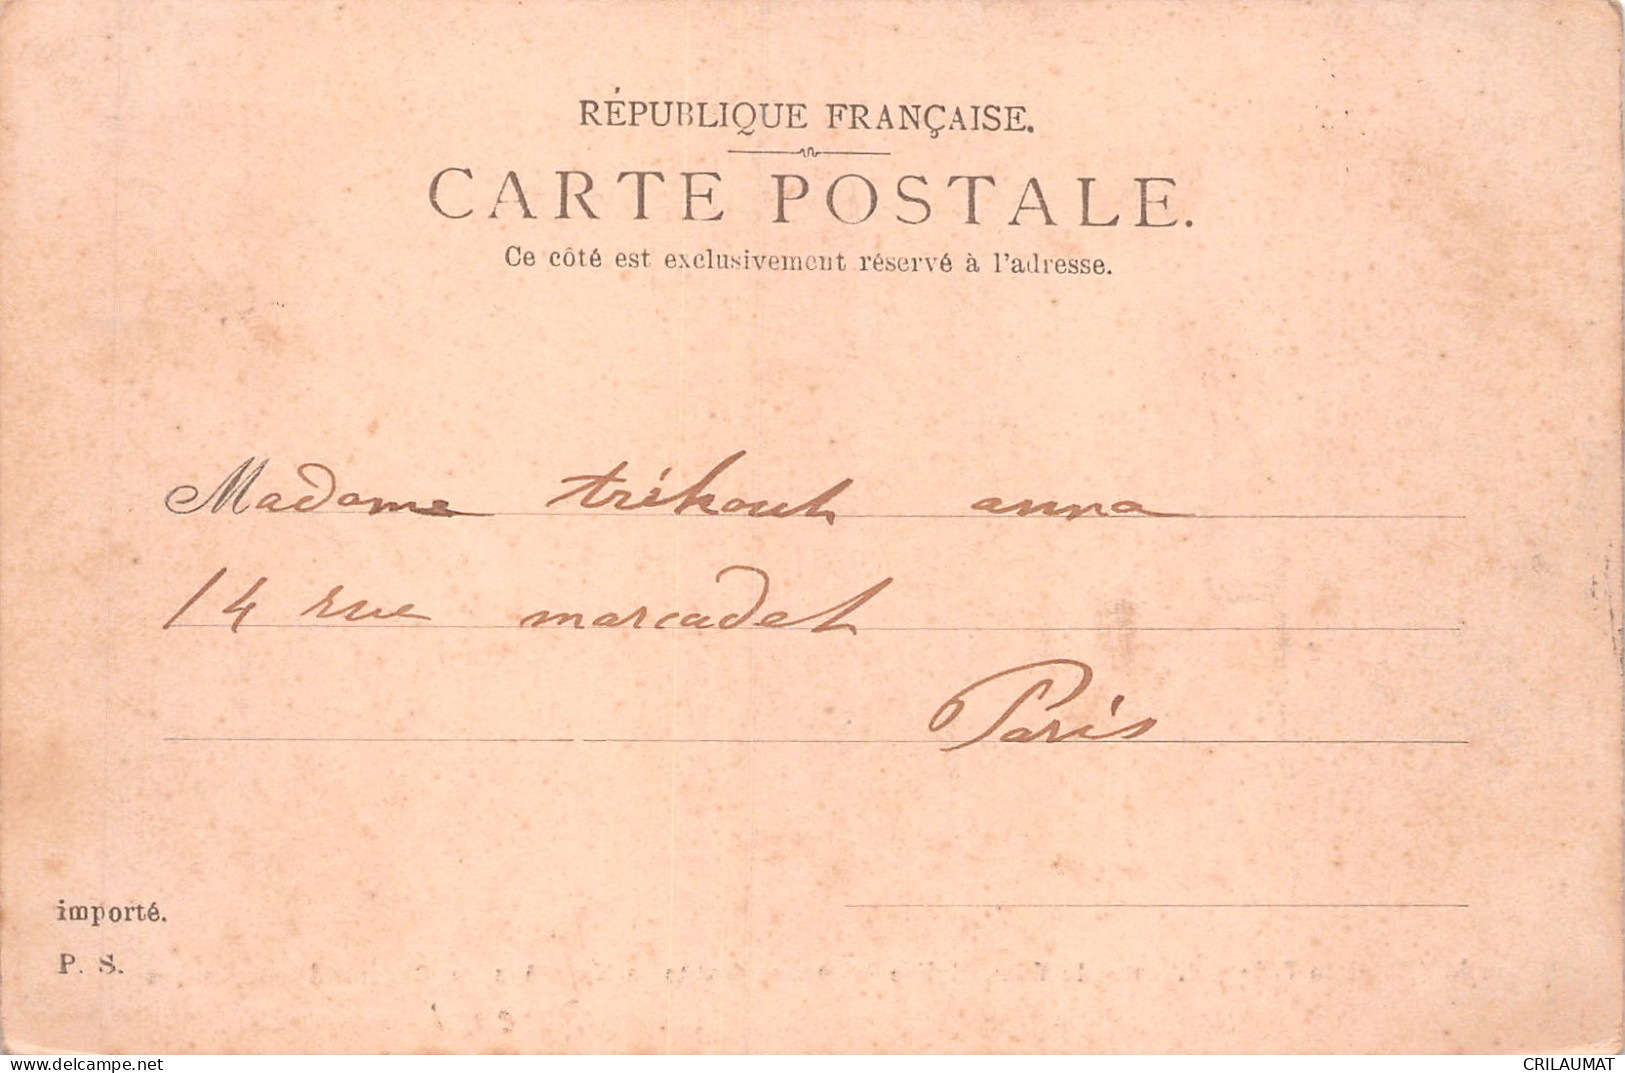 RÉPUBLIQUE FRANÇAISE.
CARTE POSTALE.
Ce côté est exclusivement réservé à l'adresse.
Madame anna
14 rue marcadet
Paris
importé.
P. S.
www.delcampe.net
CRILAUMAT